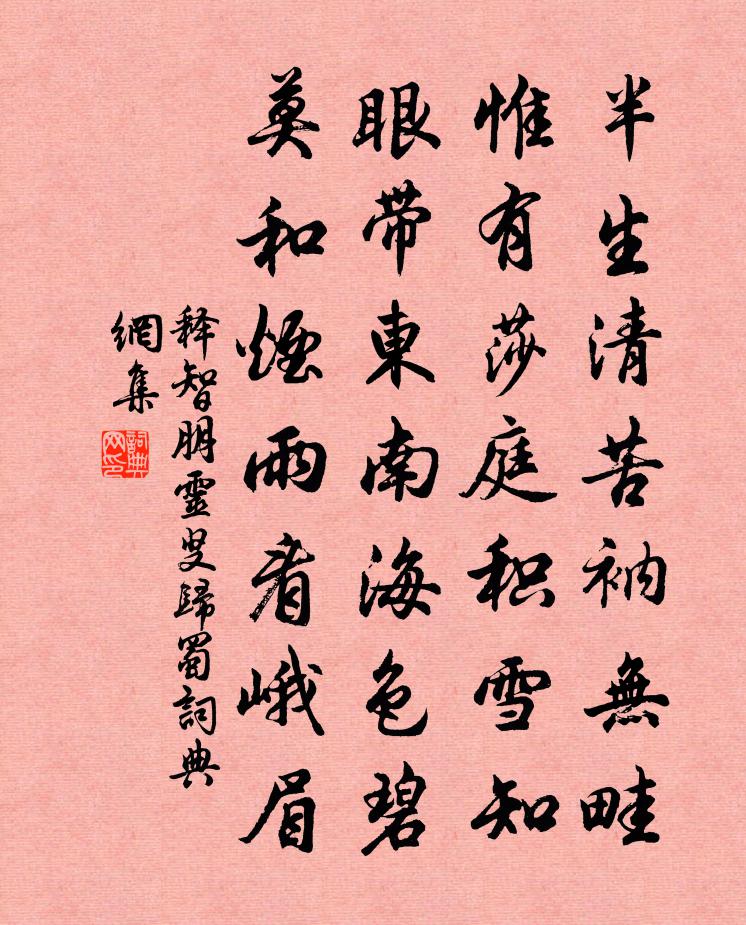 半生清苦衲無畦
惟有莎庭积雪知
眼带東南海色碧
莫和煙雨看峨眉
释智朋靈叟歸蜀詞典
網集
詞典网印